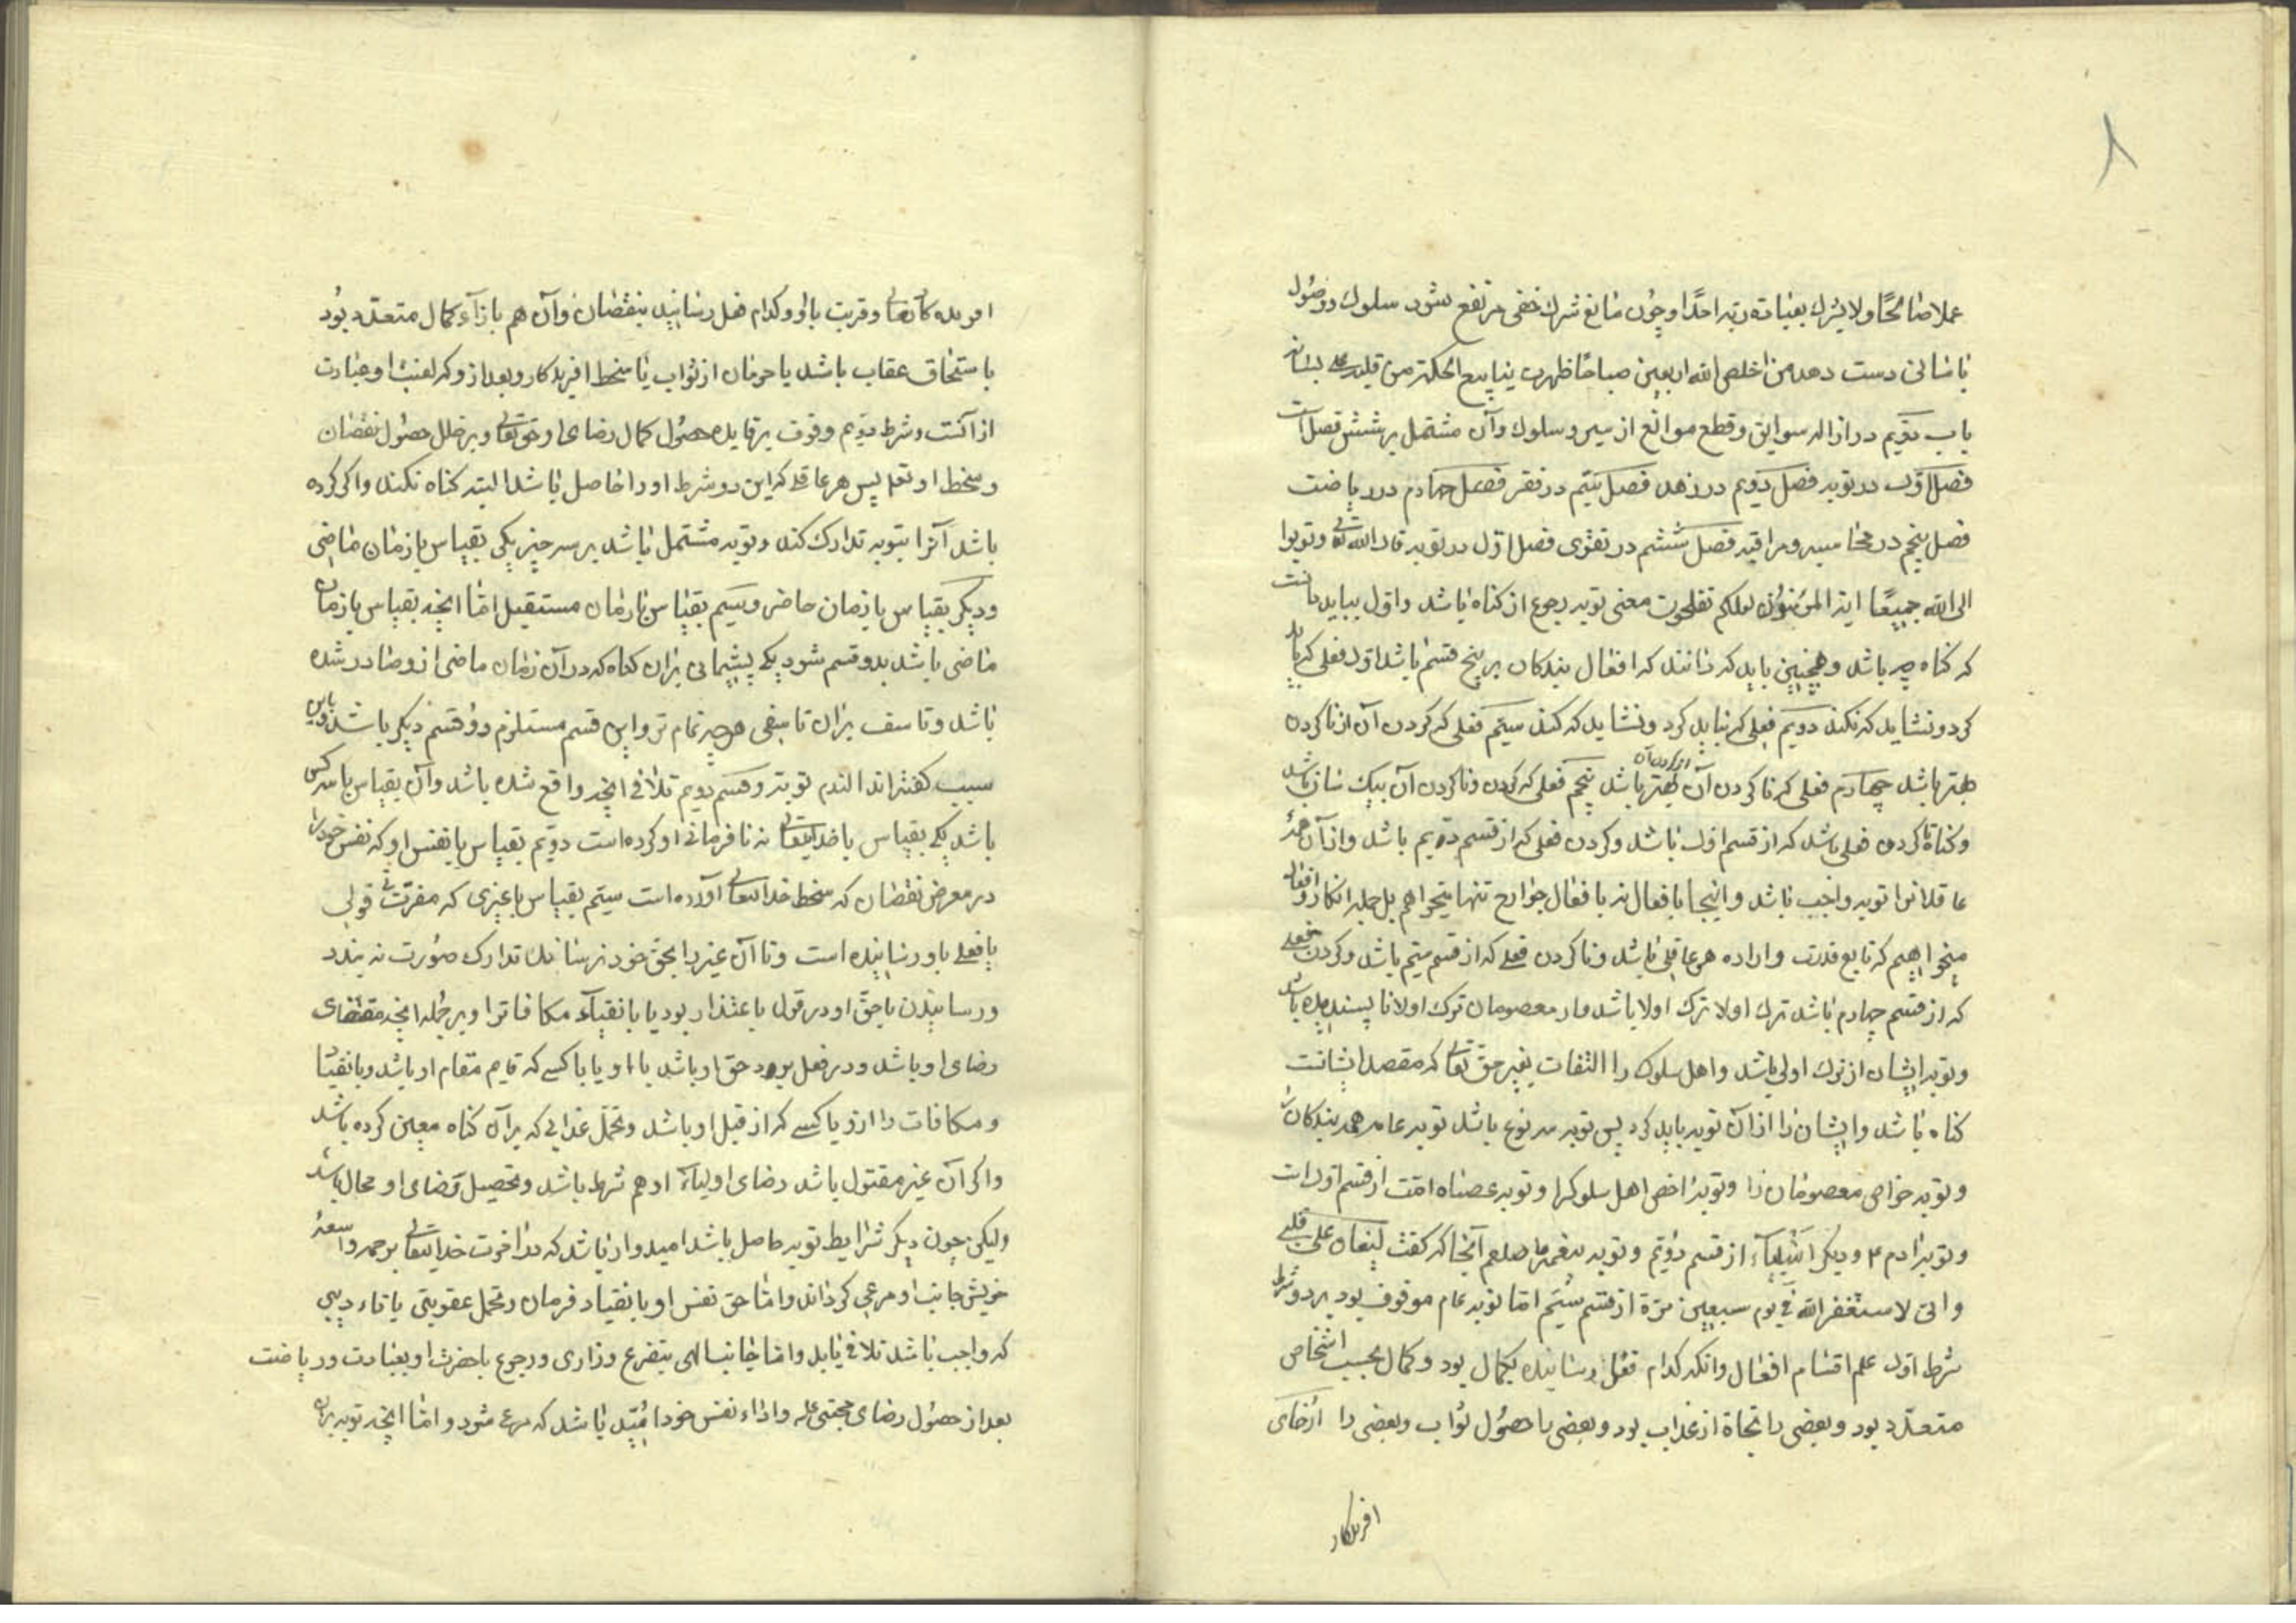 ۸
عملا صالحًا ولا یشرك بعبادة ربه احدًا و چون مانع شرك خفی مرتفع شود سلوك و وصول
باسانی دست دهد من اخلص لله اربعین صباحًا ظهرت ینابیع الحکمة من قلبه علی لسانه
باب دویم در ازاله سوایق و قطع موانع از سیر و سلوك و آن مشتمل بر شش فصل است
فصل اوّل در توبه فصل دویم در زهد فصل سیّم در فقر فصل چهارم در ریاضت
فصل پنجم در محاسبه و مراقبه فصل ششم در تقوی فصل اوّل در توبه قال الله تعالی و توبوا
الی الله جمیعًا ایه المؤمنون لعلکم تفلحون معنی توبه رجوع از کناه باشد و اول بباید دانست
که کناه چه باشد و همچنین باید که دانند که افعال بندکان بر پنج قسم باشد اول فعلی که باید
کرد و نشاید که نکند دویم فعلی که نباید کرد و نشاید که کند سیّم فعلی که کردن آن از ناکردن
بهتر باشد چهارم فعلی که ناکردن آن از کردن آن بهتر باشد پنجم فعلی که کردن و ناکردن آن یکسان باشد
و کناه ناکردن فعلی باشد که از قسم اول باشد و کردن فعلی که از قسم دویم باشد و از آن همهٔ
عاقلانرا توبه واجب باشد و اینجا بافعال نه بافعال جوارح تنها میخواهم بل جمله افکار و اقوال
میخواهیم که تابع قدرت و اراده هر عاقلی باشد و ناکردن فعلی که از قسم سیّم باشد و کردن فعلی
که از قسم چهارم باشد ترك اولا ترك اولا باشد و از معصومان ترك اولا ناپسندیده باشد
و توبه ایشان از ترك اولی باشد و اهل سلوك را التفات بغیر حق تعالی که مقصد ایشانست
کناه باشد و ایشان را از آن توبه باید کرد پس توبه سه نوع باشد توبه عام همه بندکان را
و توبه خواص معصومان را و توبهٔ اخص اهل سلوکرا و توبه عصاه امّت از قسم اول است
و توبه ادم ع و دیکر انبیاء از قسم دویّم و توبه پیغمبر ما صلعم آنجا که کفت لیغان علی قلبی
و انی لاستغفر الله فی یوم سبعین مرّة از قسم سیّم امّا توبه عام موقوف بود بر دو شرط
شرط اول علم اقسام افعال و انکه کدام فعل رساینده بکمال بود و کمال بحسب اشخاص
متعدّد بود و بعضی را نجاة از عذاب بود و بعضی با حصول ثواب و بعضی را ارضای
افریدکار
افریدکار تعالی و قربت باو و کدام فعل رسانید بنقصان و آن هم بازآء کمال متعدّد بود
باستحقاق عقاب باشد یا حرمان از ثواب یا سخط افریدکار و بعد از و که لعنت او عبارت
از آنست و شرط دویم وقوف بر فایده حصول کمال رضای او حق تعالی و بر خلل حصول نقصان
و سخط او تعا پس هر عاقل که این دو شرط او را حاصل باشد البته کناه نکند و اکر کرده
باشد آنرا بتوبه تدارك کند و توبه مشتمل باشد بر سه چیز یکی بقیاس با زمان ماضی
و دیکر بقیاس با زمان حاضر و سیّم بقیاس با زمان مستقبل امّا انچه بقیاس با زمان
ماضی باشد بدو قسم شود یکی پشیمانی بران کناه که در آن زمان ماضی از و صادر شده
باشد و تاسف بران تاسفی هر چه تمام تر و این قسم مستلزم دو قسم دیکر باشد و باین
سبب کفته‌اند الندم توبة و قسم دویم تلافی انچه واقع شده باشد و آن بقیاس با سه کس
باشد یکی بقیاس با خدایتعالی نه نافرمانی او کرده است دویّم بقیاس با نفس او که نفس خود را
در معرض نقصان که سخط خدایتعالی آورده است سیّم بقیاس با غیری که مضرّت قولی
یا فعلی باو رسانیده است و تا آن غیر را بحق خود نرساند تدارك صورت نه بندد
و رسانیدن با حقّ او در قول یا عتذار بود یا بانقیاد مکافاترا و بر جمله انچه مقتضای
رضای او باشد و در فعل برد حق او باشد با او یا با کسی که قایم مقام او باشد و بانقیاد
و مکافات را از و یا کسی که از قبل او باشد و تحمّل عذابی که بر آن کناه معین کرده باشد
و اکر آن غیر مقتول باشد رضای اولیاء او هم شرط باشد و تحصیل رضای او محال باشد
و لیکن چون دیکر شرایط توبه حاصل باشد امیدوار باشد که در اخرت خدایتعالی برحمه واسعهٔ
خویش جانب او مرعی کرداند و امّا حق نفس او بانقیاد فرمان و تحمل عقوبتی یا تاءدیبی
که واجب باشد تلافی باید و امّا جانب الهی بتضرع و زاری و رجوع با حضرت او بعبادت و ریاضت
بعد از حصول رضای مجنی علیه و اداء نفس خود امّید باشد که مرعی شود و امّا انچه توبه بران